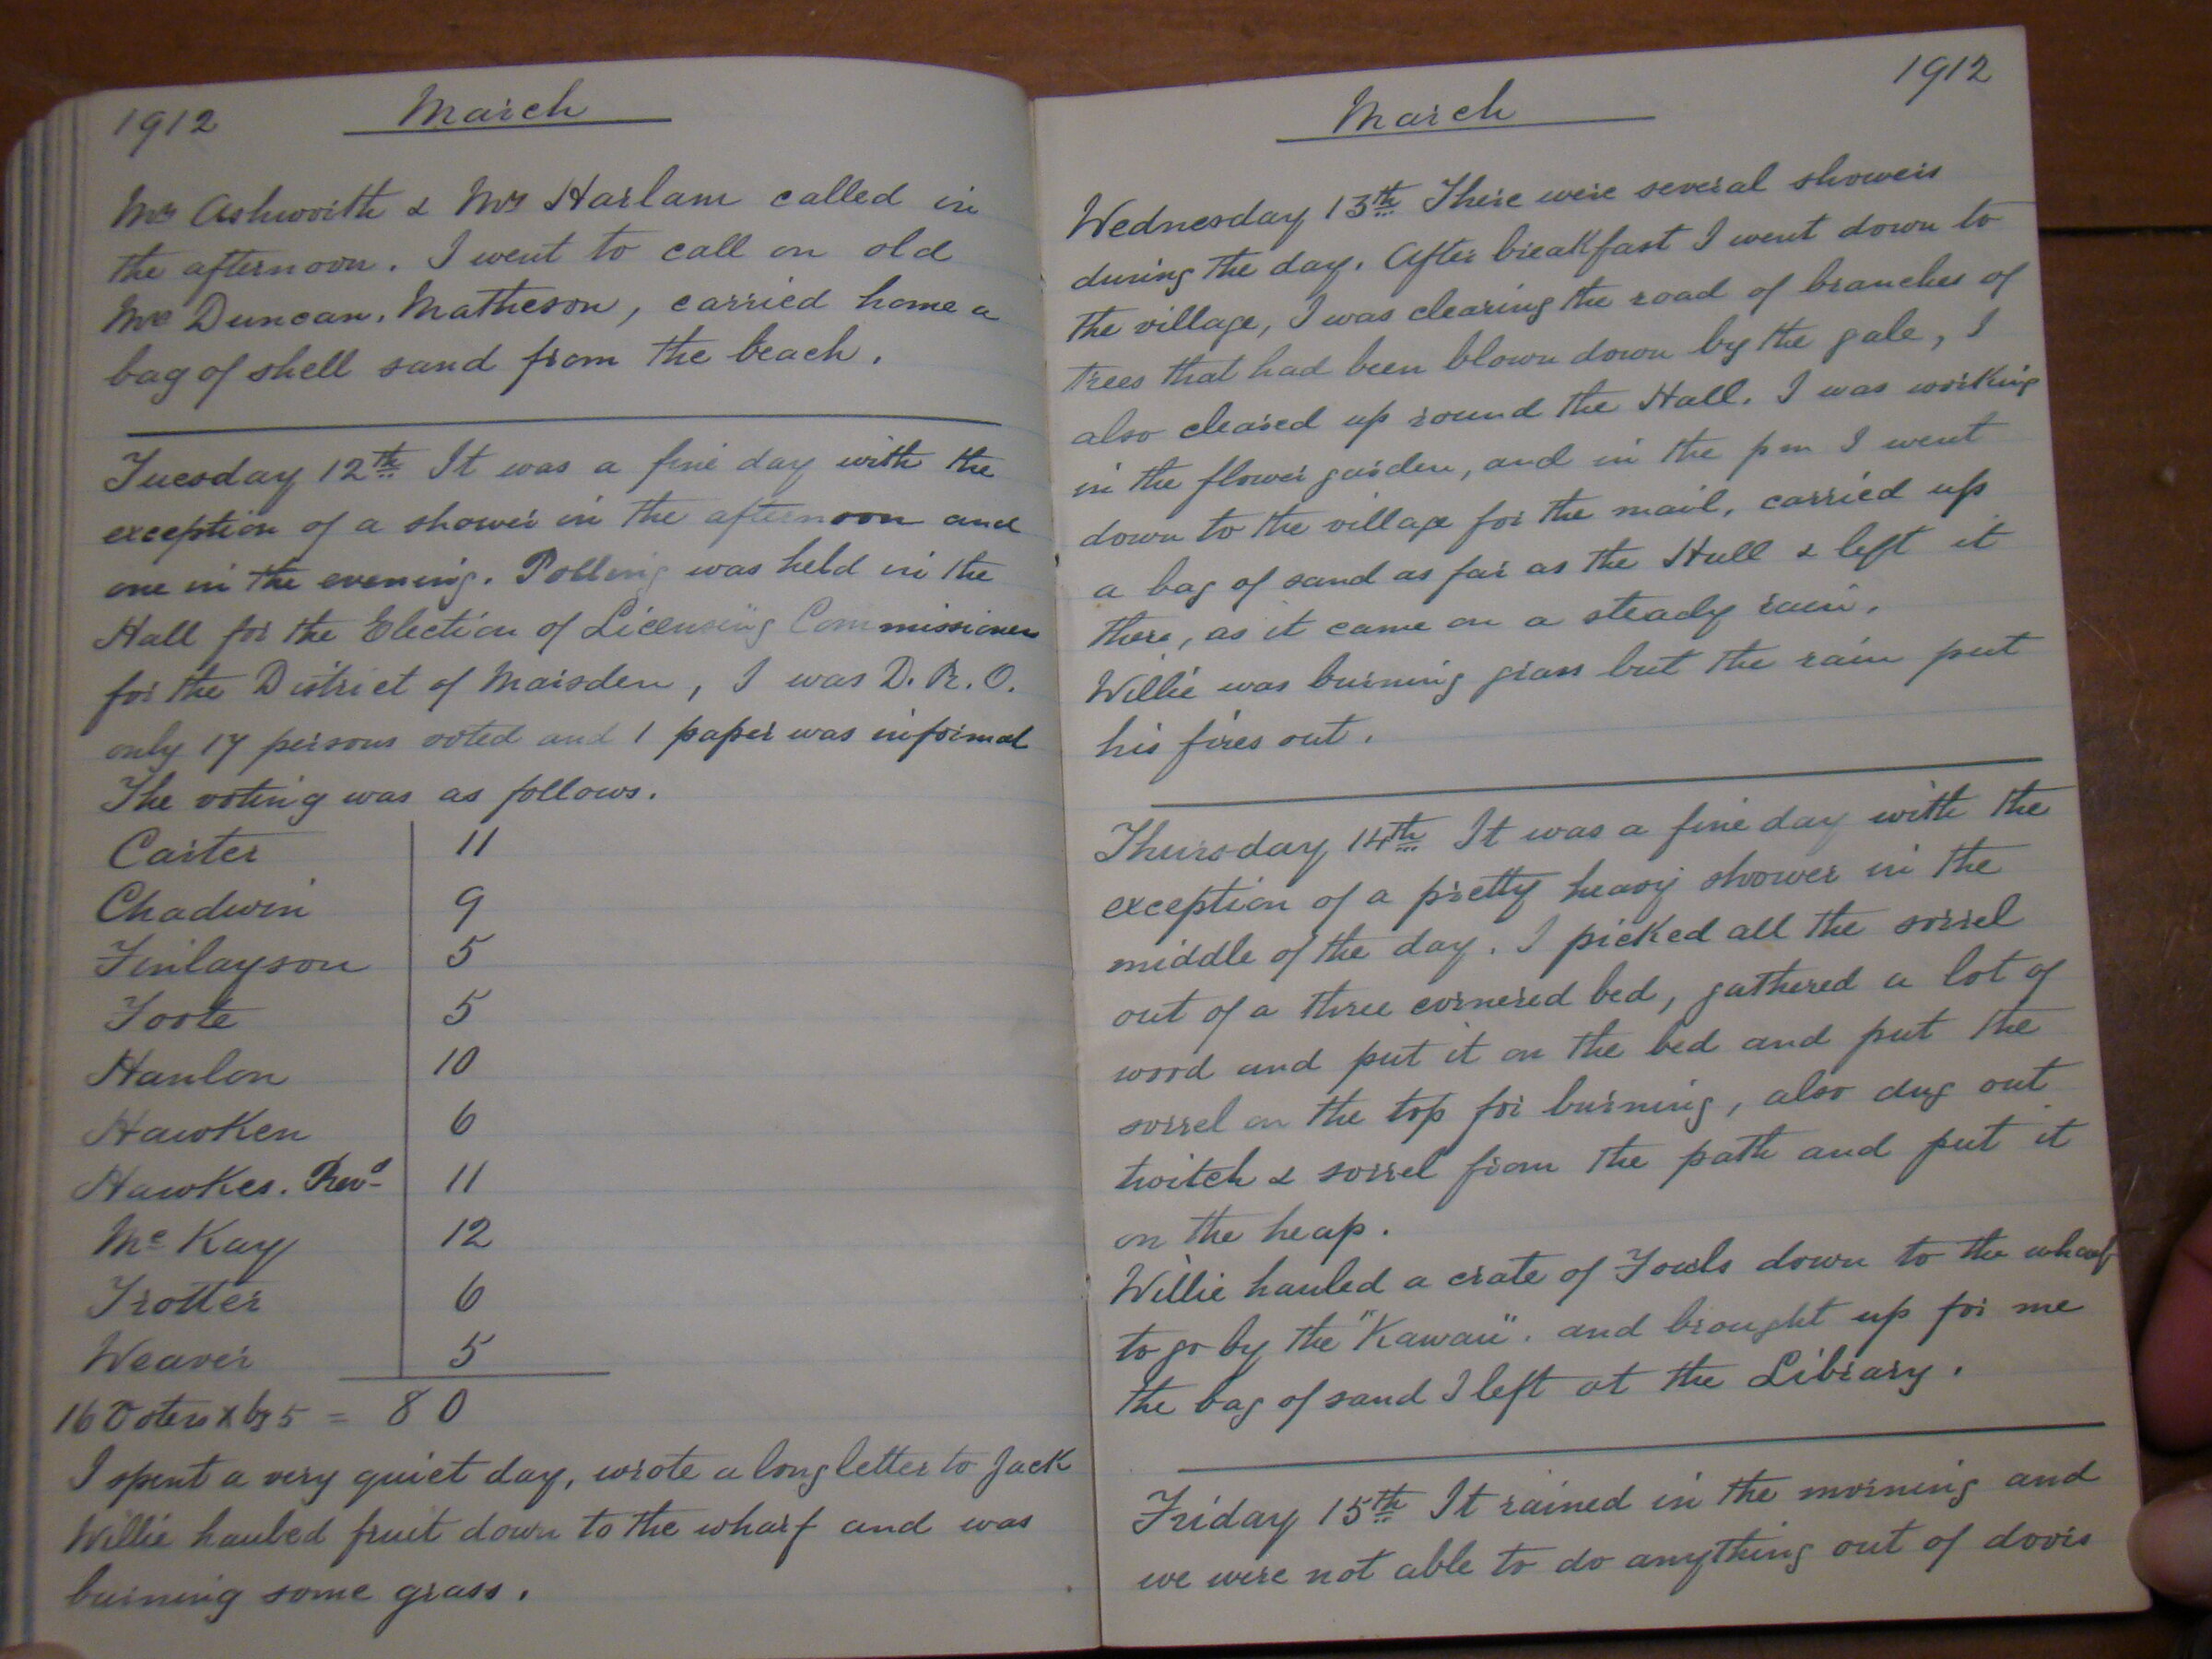 1912 March
Mrs Ashworth & Mrs Harlam called in
the afternoon. I went to call on old
Duncan. Matheson, carried home a
bag of shell sand from the beach.
Tuesday 12th It was a fine day with the
exception of a shower in the afternoon and
one in the evening. Polling was held in the
Hall for the Election of Licensing Commissioners
for the District of Marsden, I was D. R. O.
only 17 persons voted and 1 paper was informal
The voting was as follows.
Carter 11
Chadwin 9
Finlayson 5
Foote 5
Hanlon 10
Hawken 6
Hawkes. Revd 11
Mc Kay 12
Trotter 6
Weaver 5
16 Voters x by 5 = 80
I spent a very quiet day, wrote a long letter to Jack
Willie hauled fruit down to the wharf and was
burning some grass.
March 1912
Wednesday 13th There were several showers
during the day. After breakfast I went down to
the village, I was clearing the road of branches of
trees that had been blown down by the gale, I
also cleared up round the Hall. I was working
in the flower garden, and in the pm I went
down to the village for the mail, carried up
a bag of sand as far as the Hall & left it
there, as it came on a steady rain.
Willie was burning grass but the rain put
his fires out.
Thursday 14th It was a fine day with the
exception of a pretty heavy shower in the
middle of the day. I picked all the sorrel
out of a three cornered bed, gathered a lot of
wood and put it on the bed and put the
sorrel on the top for burning, also dug out
twitch & sorrel from the path and put it
on the heap.
Willie hauled a crate of Fowls down to the wharf
to go by the "Kawau". and brought up for me
the bag of sand I left at the Library.
Friday 15th It rained in the morning and
we were not able to do anything out of doors